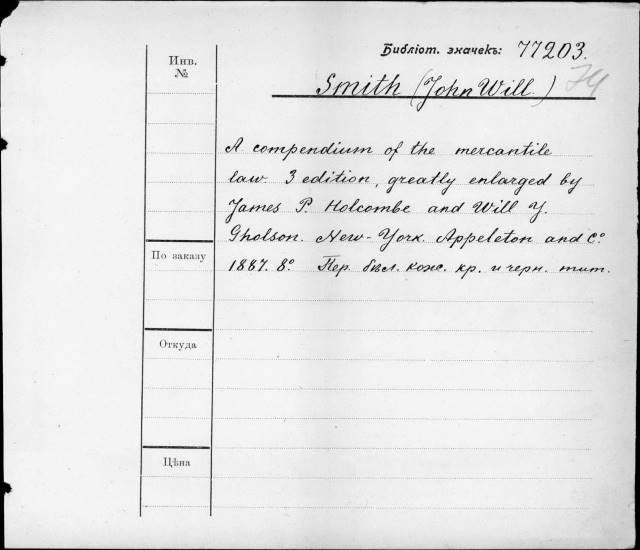 Библіот. значекъ: 77203.
74
Smith (John Will.)
Инв.
№
A compendium of the mercantile
law 3 edition, greatly enlarged by
James P. Holcombe and Will Y.
Gholson. New-York. Appeleton and C.º
1887. 8.º Пер. бѣл. кож. кр. и черн. тит.
По заказу
Откуда
Цѣна